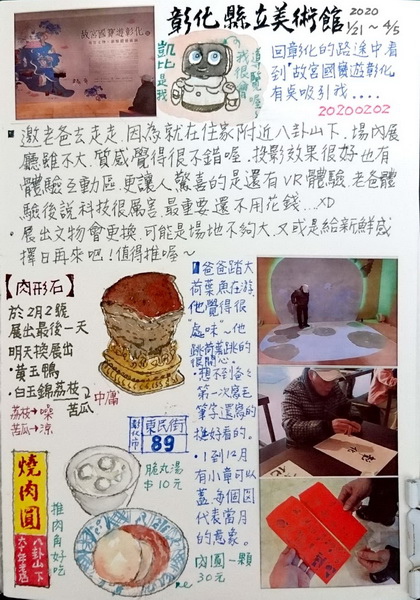 彰化縣立美術館
2020
1/21~4/5
故宮國寶遊彰化
凱比是我
我很會
回彰化的路途中看
到"故宮國寶遊彰化
有桌吸引我....
20200202
邀老爸去走走,因為就在住家附近八卦山下,場內展
廳雖不大,質感覺得很不錯喔,投影效果很好也有
體驗互動區,更讓人驚喜的是還有VR體驗,老爸體
驗後說科技很厲害,最重要還不用花錢...XD
展出文物會更換,可能是場地不夠大,又或是給新鮮感
擇日再來吧!值得推喔~
【肉形石】
於2月2號
展出最後一天
明天換展出
·黃玉鴨
·白玉錦荔枝
苦瓜
荔枝→
苦瓜→涼
爸爸踏大
荷葉魚在游,
他覺得很
"趣味"~他
跳荷葉跳的
很開心。
·想不到爸爸
第一次寫毛
筆字還寫的
挺好看的。
·1到12月
有小章可以
蓋,每個圖
代表當月
的意象。
彰化市
東民街
89
燒肉圓
八卦山下
六十年老店
推肉角好吃
脆丸湯
中10元
肉圓一顆
30元